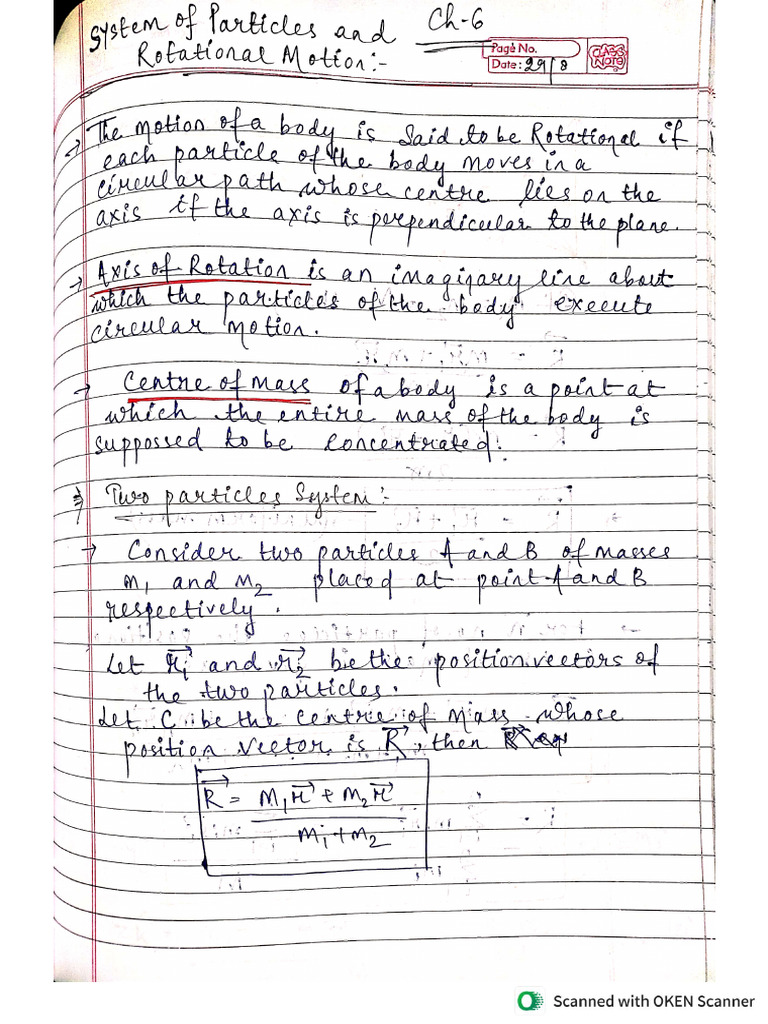 System of Particles and Ch-6
Rotational Motion:-
Page No.
Date: 29/8
CLASS Note
→ The motion of a body is said to be Rotational if
each particle of the body moves in a
circular path whose centre lies on the
axis if the axis is perpendicular to the plane.
→ Axis of Rotation is an imaginary line about
which the particles of the body execute
circular motion.
→ Centre of mass of a body is a point at
which the entire mass of the body is
suppossed to be concentrated.
⇒ Two particles System:-
→ Consider two particles A and B of masses
m₁ and m₂ placed at point A and B
respectively.
Let r₁⃗ and r₂⃗ be the position vectors of
the two particles.
Let C be the centre of mass whose
position vector is R⃗, then
R⃗ = m₁r⃗ + m₂r⃗
m₁+m₂
Scanned with OKEN Scanner